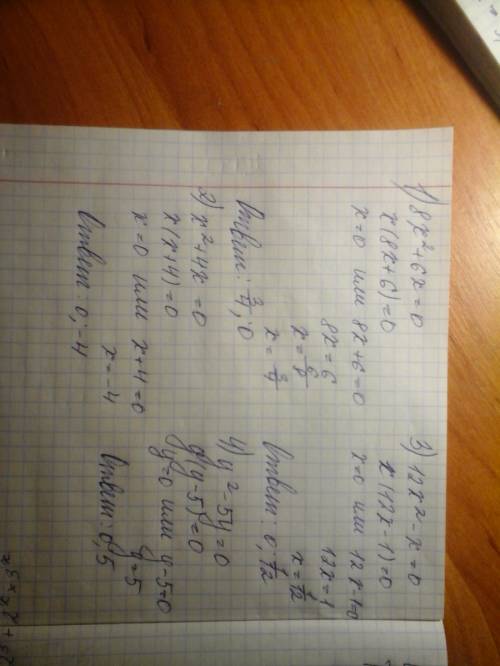 1) 8x²+6x=0
x(8x+6)=0
x=0 или 8x+6=0
8x=6
x=6/8
x=3/4
Ответ: 3/4; 0
2) x²+4x=0
x(x+4)=0
x=0 или x+4=0
x=-4
Ответ: 0; -4
3) 12x²-x=0
x(12x-1)=0
x=0 или 12x-1=0
12x=1
x=1/12
Ответ: 0; 1/12
4) y²-5y=0
y(y-5)=0
y=0 или y-5=0
y=5
Ответ: 0; 5